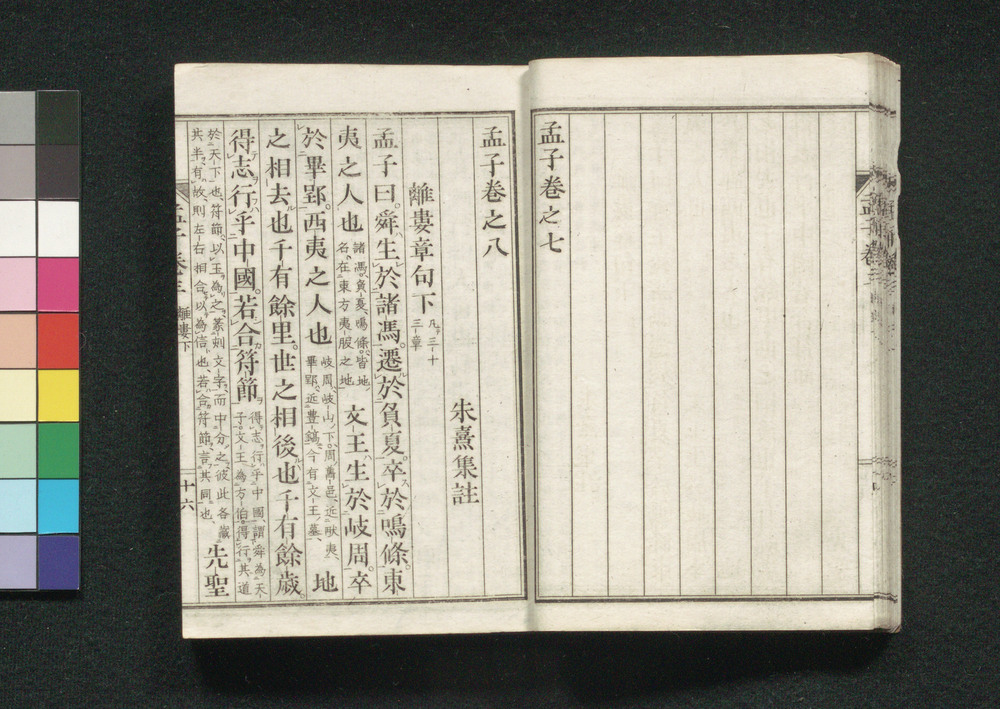 孟子卷之七
孟子卷之八
朱熹集註
離婁章句下凡三十三章
孟子曰。舜生於諸馮。遷於負夏。卒於鳴條。東
夷之人也諸馮、負夏、鳴條。皆地名。在東方夷服之地文王生於岐周。卒
於畢郢。西夷之人也岐周、岐山下。周舊邑、近畎夷、畢郢、近豐鎬、今有文王墓、地
之相去也千有餘里。世之相後也千有餘歲。
得志行乎中國。若合符節得志行乎中國、謂舜為天子。文王為方伯。得行其道
於天下也、符節。以玉為之、篆刻文字、而中分之、彼此各藏其半。有故、則左右相合、以為信也、若合符節、言其同也、先聖
孟子 卷三 離婁下 十六